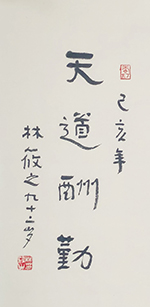 己亥年
天道酬勤
林筱之九十二岁